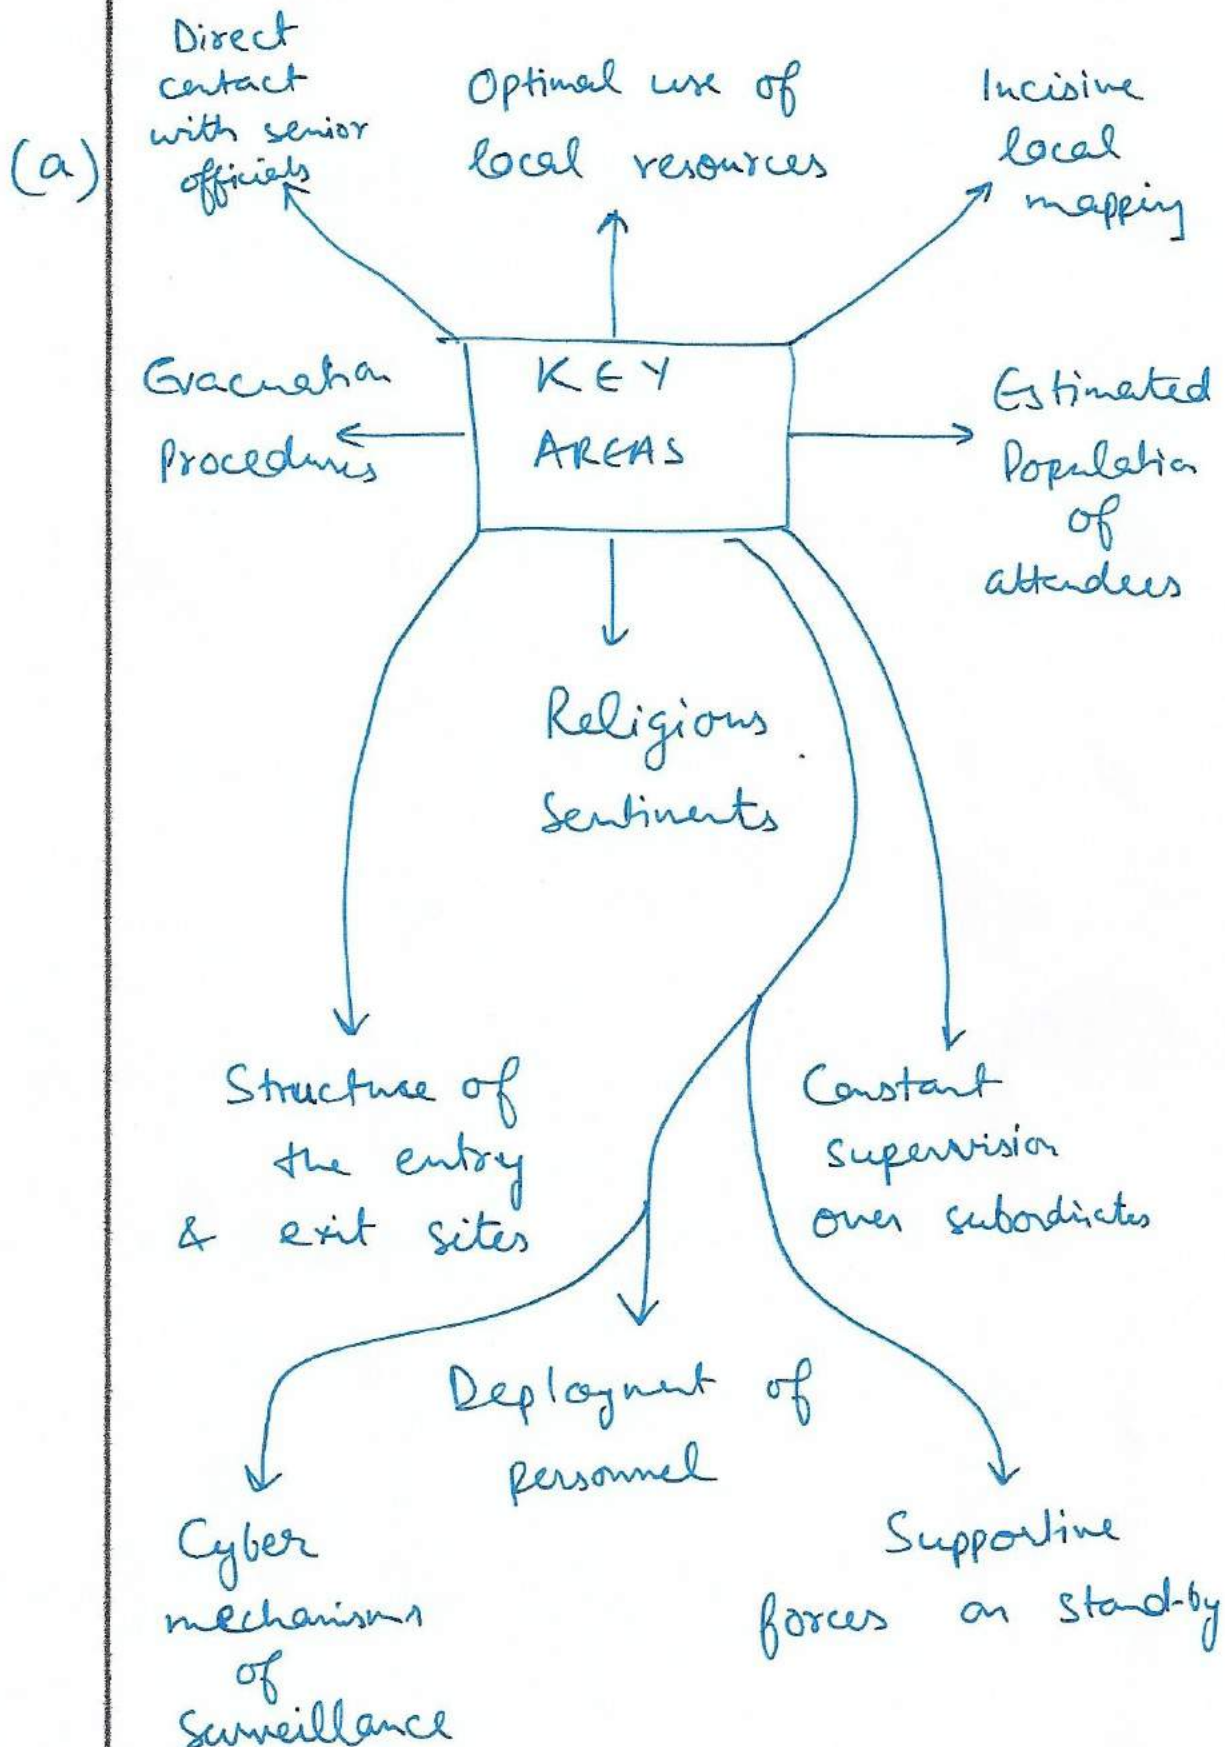 (a)
Direct
contact
with senior
officials
Optimal use of
local resources
Incisive
local
mapping
Evacuation
Procedures
KEY
AREAS
Estimated
Population
of
attendees
Religious
Sentiments
Structure of
the entry
& exit sites
Constant
supervision
over subordinates
Deployment of
personnel
Cyber
mechanisms
of
Surveillance
Supportive
forces on stand-by